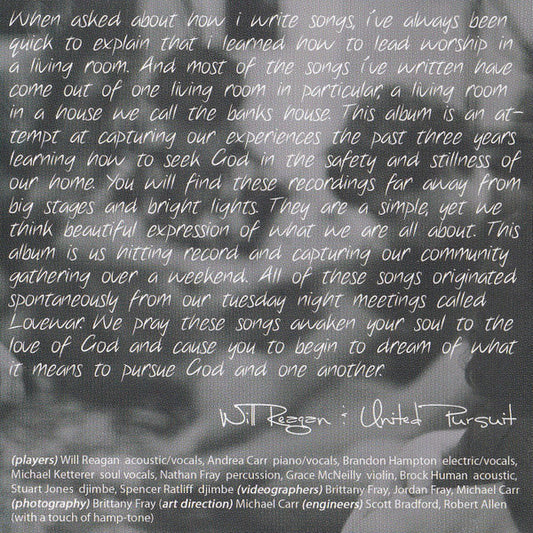 When asked about how i write songs, i've always been
quick to explain that i learned how to lead worship in
a living room. And most of the songs i've written have
come out of one living room in particular, a living room
in a house we call the banks house. This album is an at-
tempt at capturing our experiences the past three years
learning how to seek God in the safety and stillness of
our home. You will find these recordings far away from
big stages and bright lights. They are a simple, yet we
think beautiful expression of what we are all about. This
album is us hitting record and capturing our community
gathering over a weekend. All of these songs originated
spontaneously from our tuesday night meetings called
Lovewar. We pray these songs awaken your soul to the
love of God and cause you to begin to dream of what
it means to pursue God and one another.
Will Reagan & United Pursuit
(players) Will Reagan acoustic/vocals, Andrea Carr piano/vocals, Brandon Hampton electric/vocals,
Michael Ketterer soul vocals, Nathan Fray percussion, Grace McNeilly violin, Brock Human acoustic,
Stuart Jones djimbe, Spencer Ratliff djimbe (videographers) Brittany Fray, Jordan Fray, Michael Carr
(photography) Brittany Fray (art direction) Michael Carr (engineers) Scott Bradford, Robert Allen
(with a touch of hamp-tone)